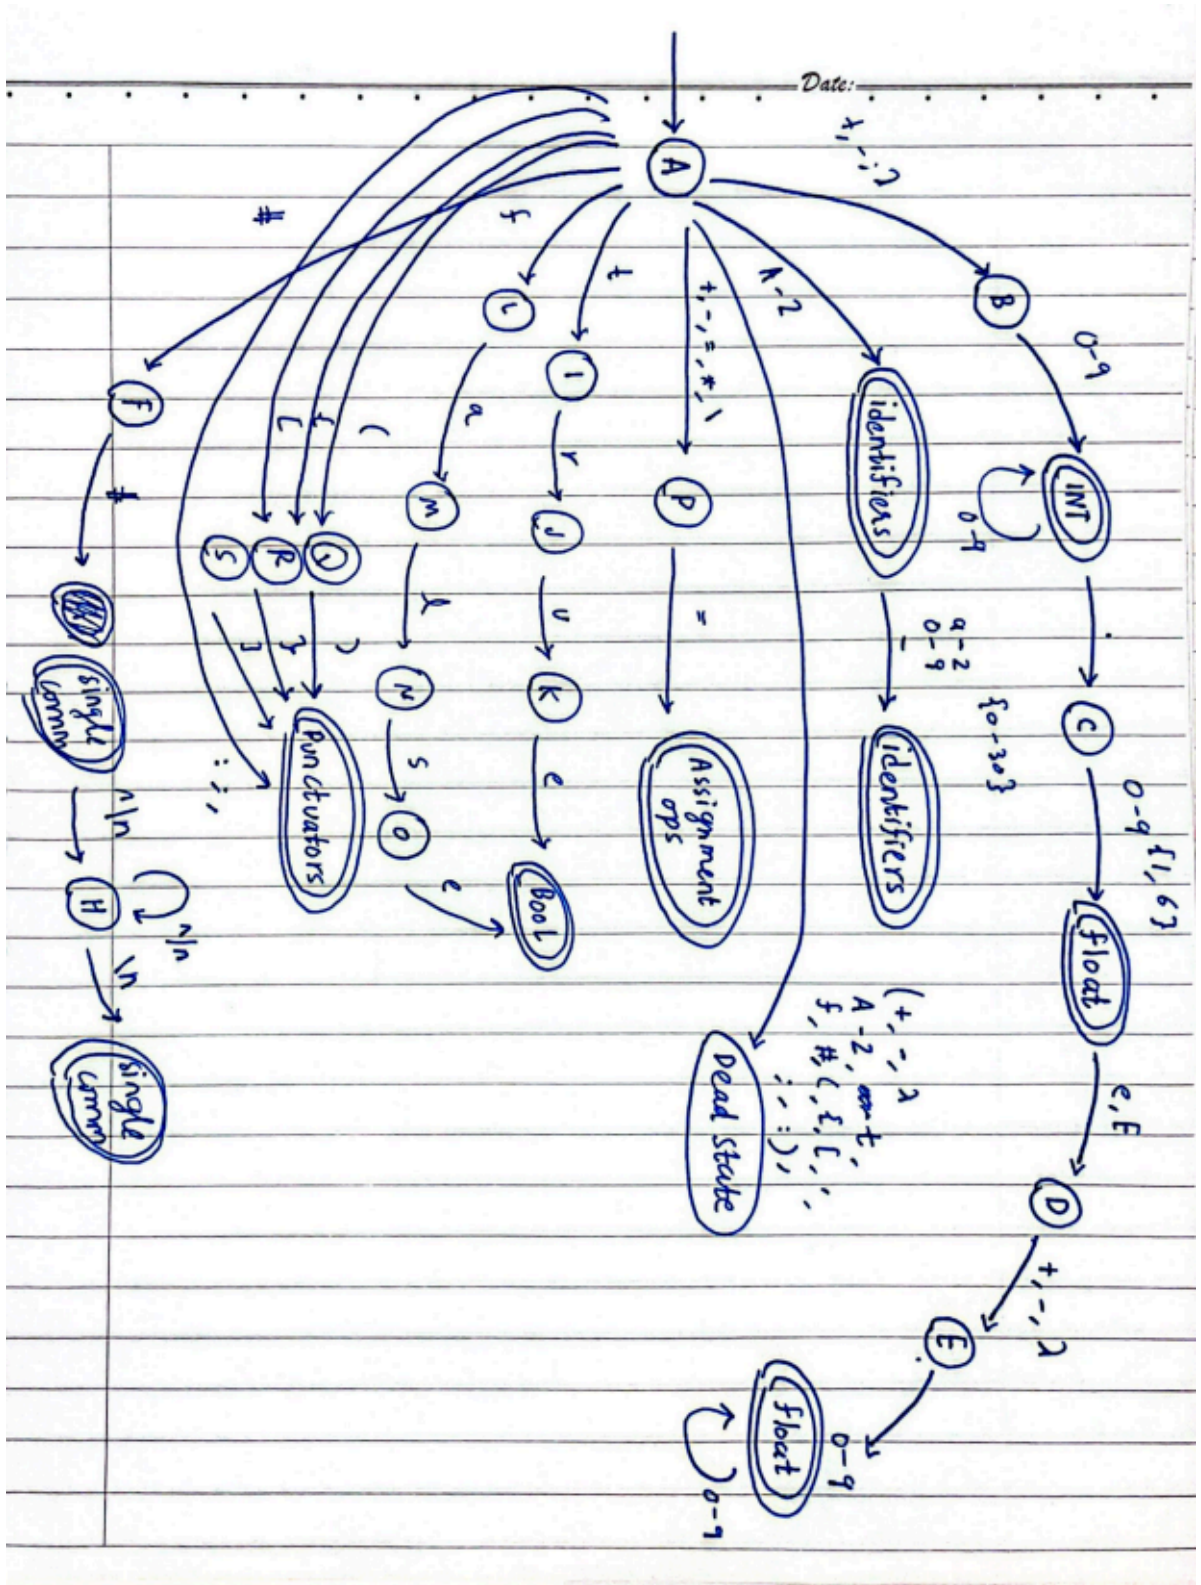 Date:
A
+, -, λ
B
0-9
INT
0-9
.
C
0-9 {1,6}
float
e,E
D
+, -, λ
E
0-9
float
0-9
A-Z
identifiers
a-z
0-9
_
{0-30}
identifiers
(+, -, λ
A-Z, t,
f, #, (, {, [, ,
; , :),
Dead state
+, -, =, *, \
P
=
Assignment
ops
t
I
r
J
u
K
e
Bool
f
L
a
M
l
N
s
O
e
(
{
[
Q
R
S
)
}
]
: ; ,
Punctuators
#
F
#
single
comm
^\n
H
^\n
\n
single
comm